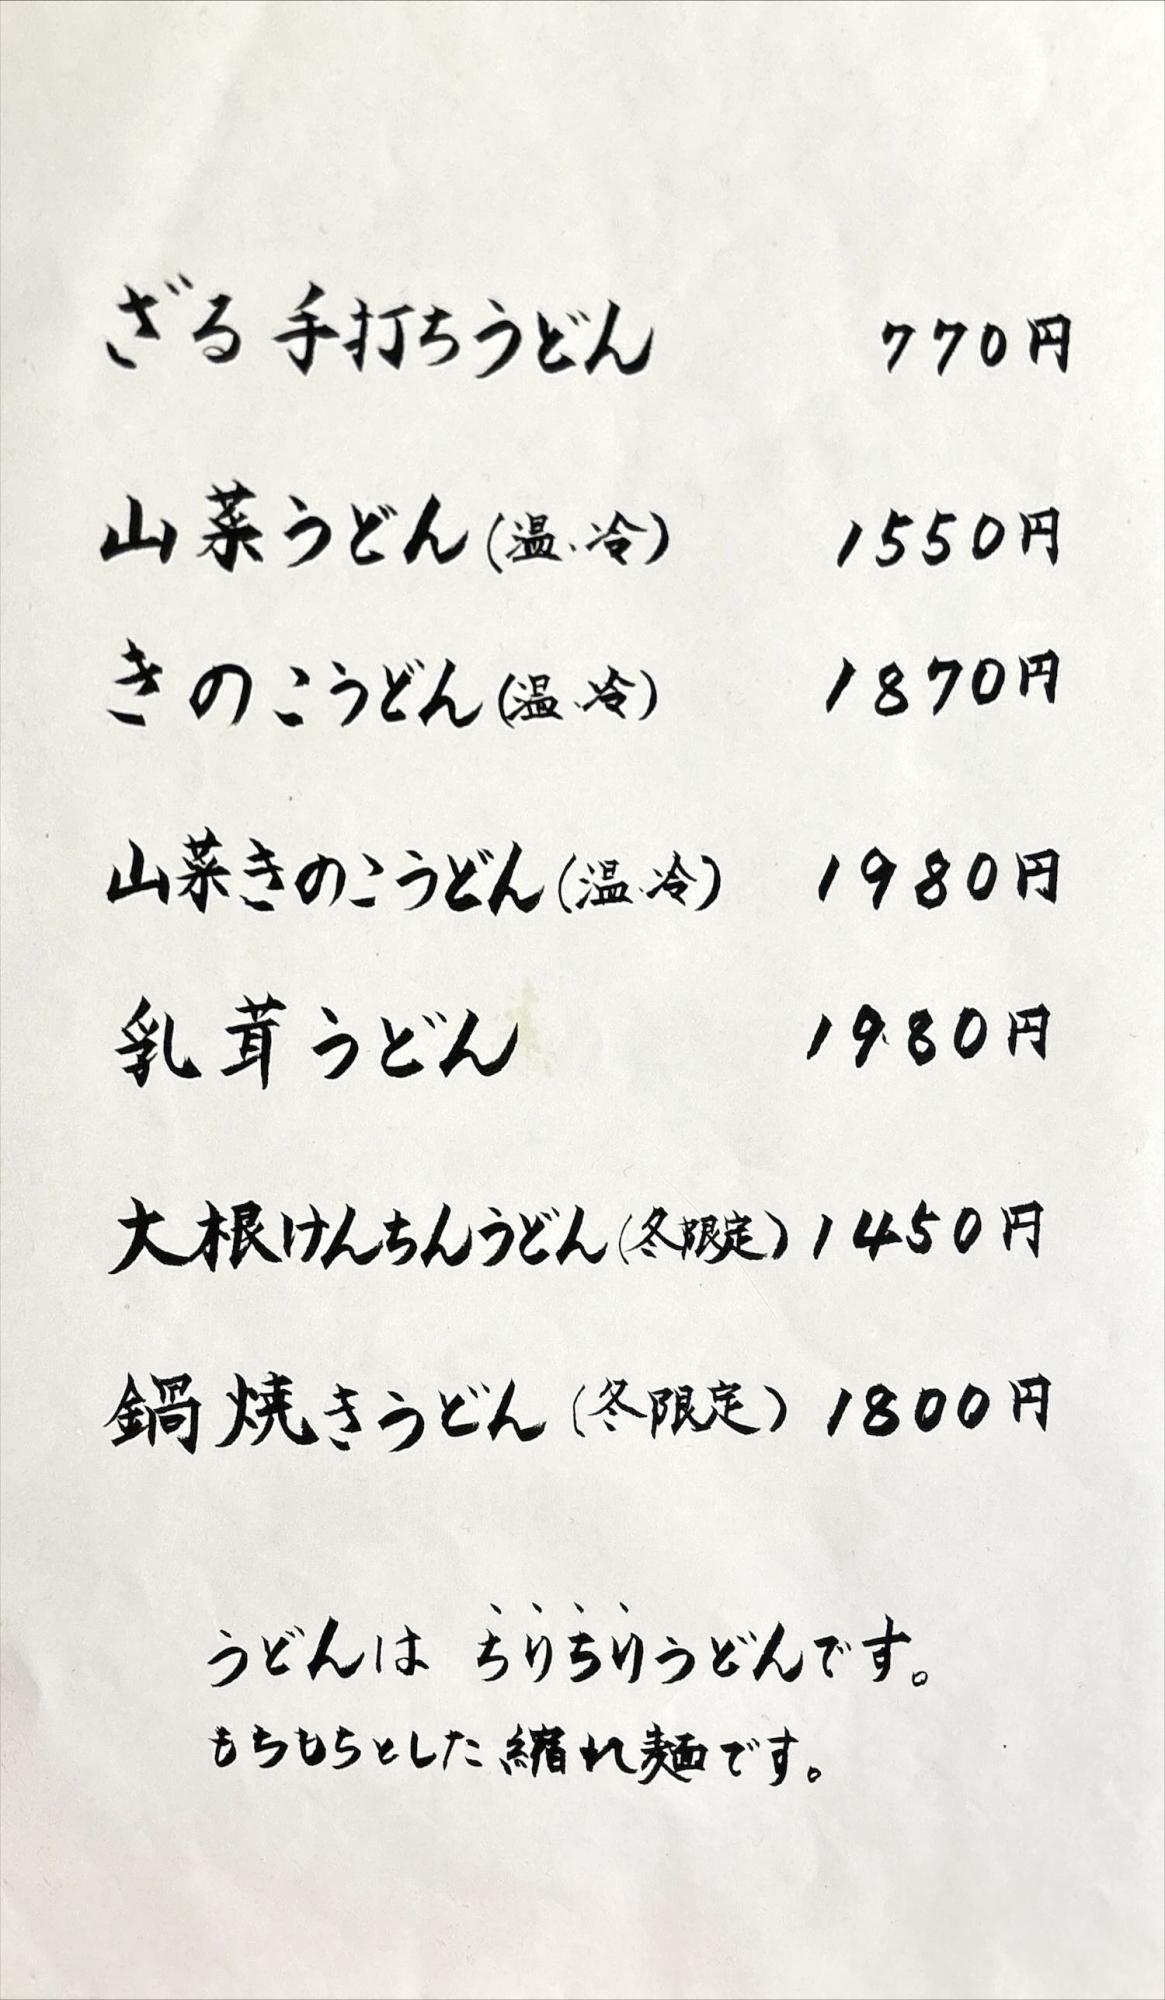 ざる手打ちうどん 770円
山菜うどん(温・冷) 1550円
きのこうどん(温・冷) 1870円
山菜きのこうどん(温・冷) 1980円
乳茸うどん 1980円
大根けんちんうどん(冬限定) 1450円
鍋焼きうどん(冬限定) 1800円
うどんは ちりちりうどんです。
もちもちとした縮れ麺です。